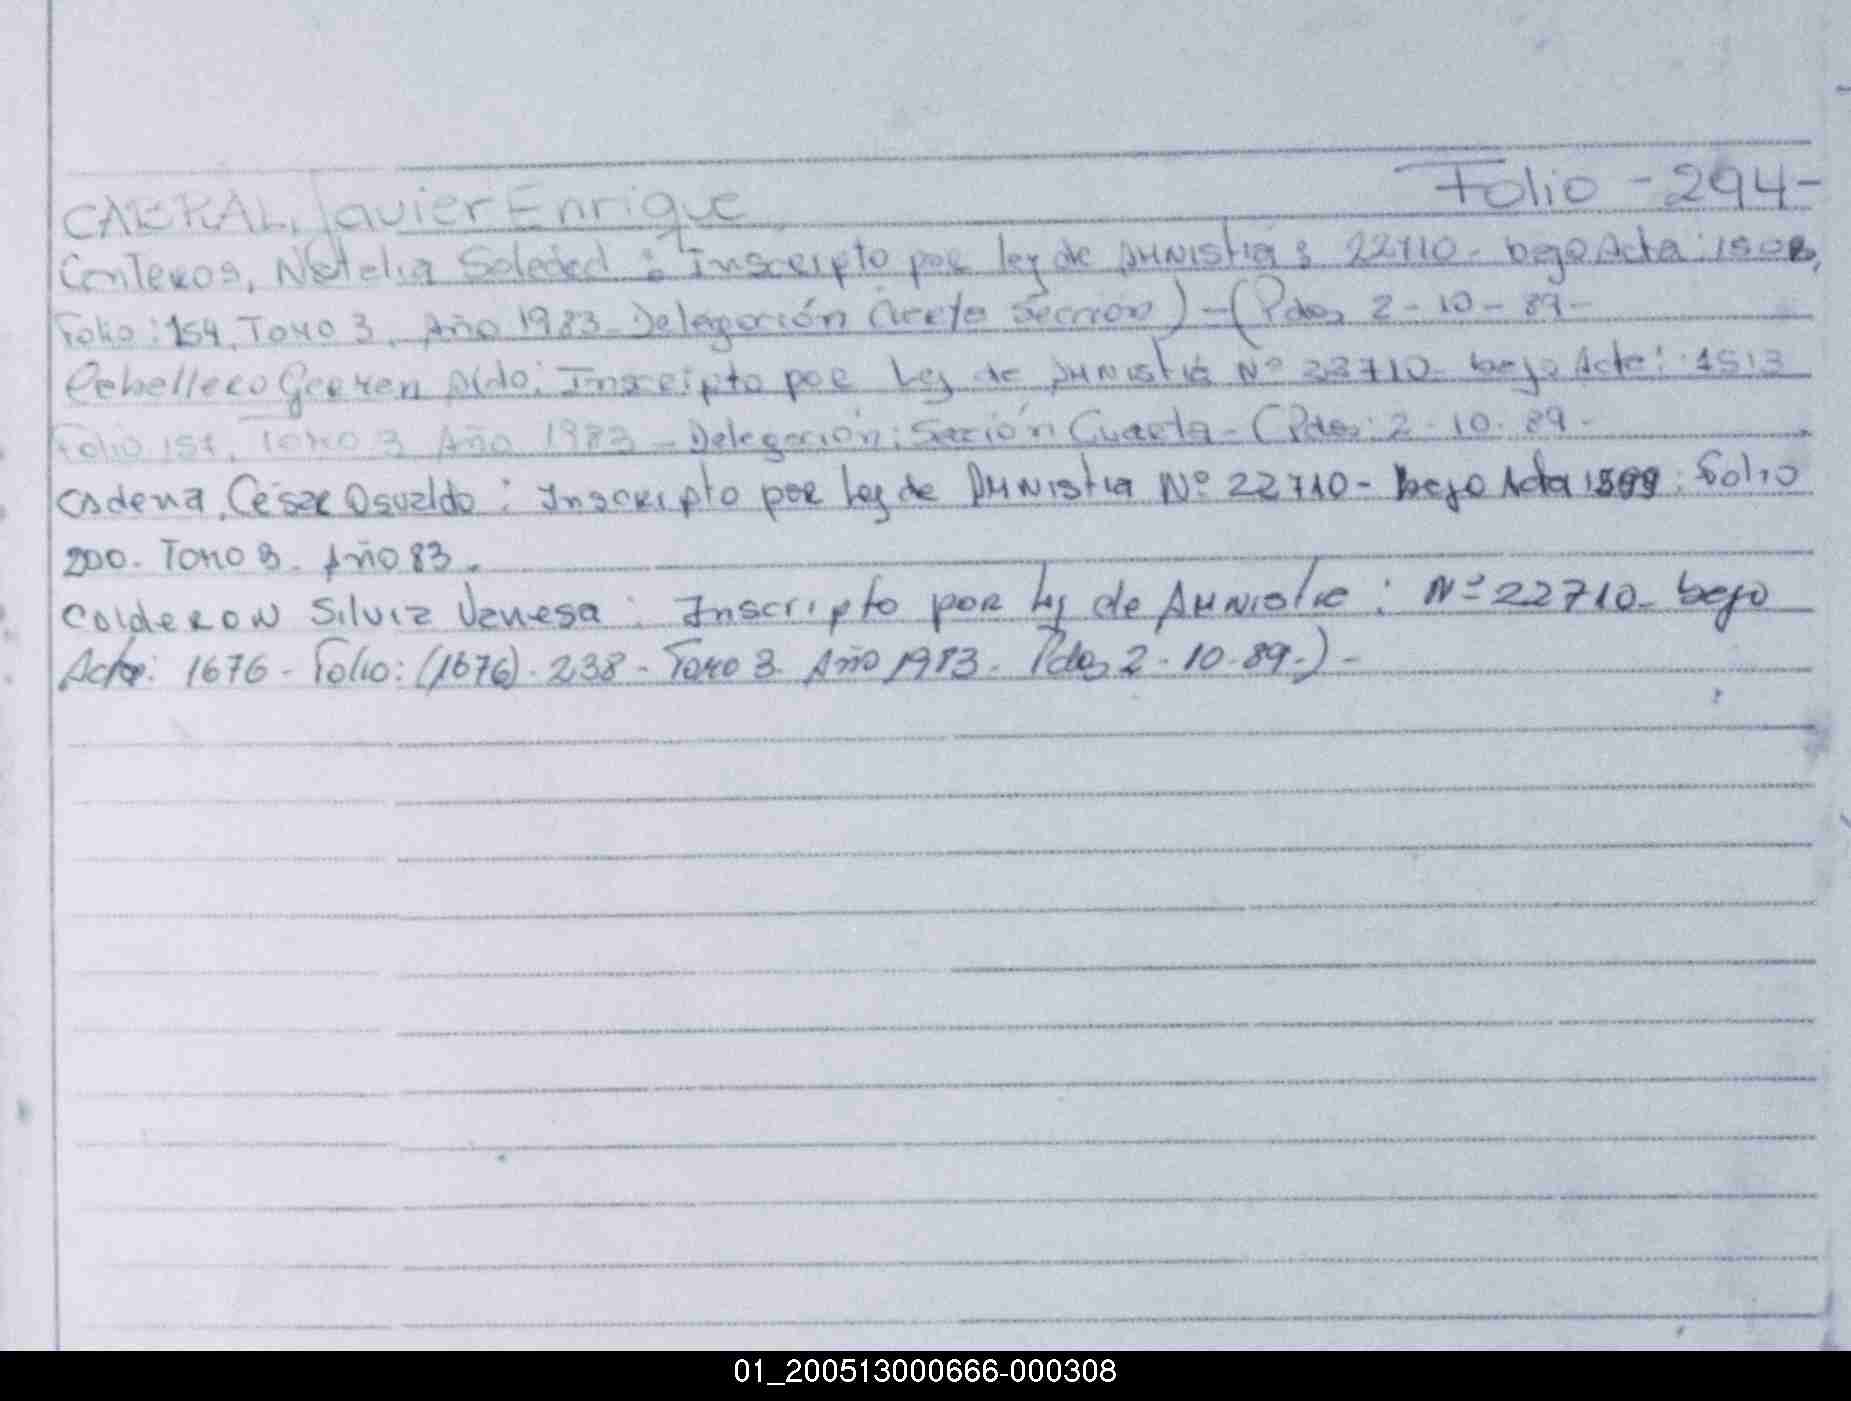 CABRAL, Javier Enrique Folio - 294 -
Conteros, Natalia Soledad : Inscripto por ley de Amnistia : 22710 - bajo Acta : 1508,
Folio : 154, Tomo 3, Año 1983 - Delegación Cuarta Sección) - (Pdo, 2 - 10 - 89 -
Cabellero German Aldo : Inscripto por Ley de Amnistia Nº 22710 - bajo Acta : 1513
Folio 157, Tomo 3 Año 1983 - Delegación : Sección Cuarta - (Pdo : 2 - 10 - 89 -
Cadena, César Osvaldo : Inscripto por Ley de Amnistia Nº 22710 - bajo Acta 1599 : Folio
200 - Tomo 3 - Año 83 .
Calderon Silvia Vanesa : Inscripto por Ley de Amnistia : Nº 22710 - bajo
Acta : 1676 - Folio : (1676) - 238 - Tomo 3 - Año 1983 - Pdo, 2 - 10 - 89 - ) -
01_200513000666-000308